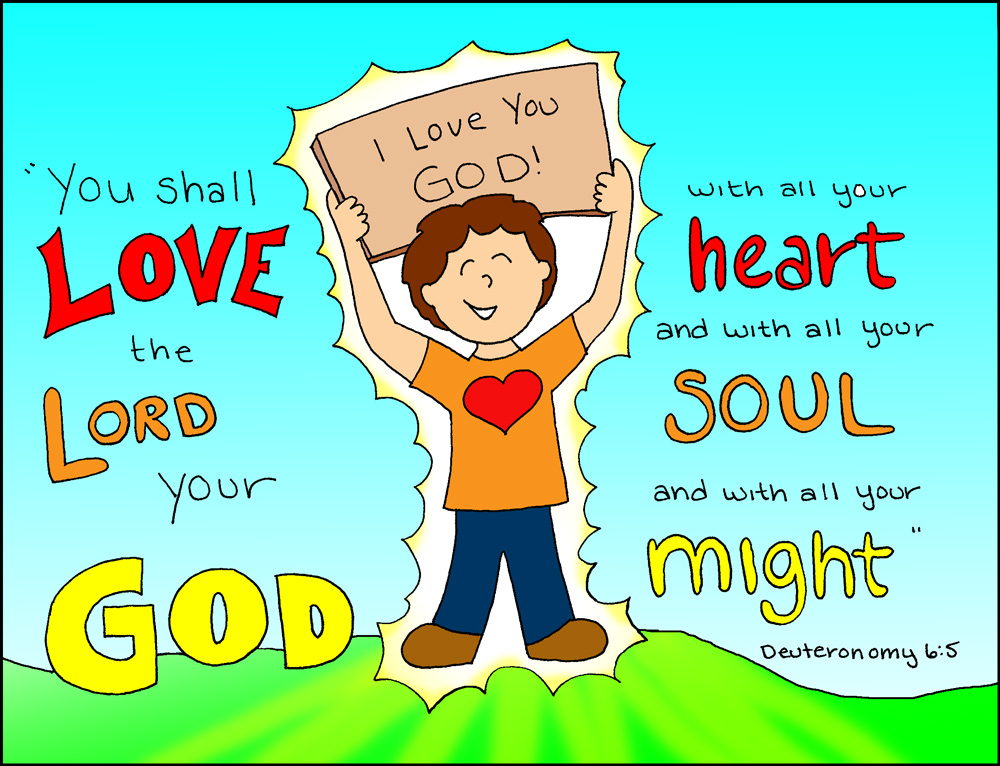 I Love You
GOD!
"You shall
LOVE
the
LORD
your
GOD
with all your
heart
and with all your
SOUL
and with all your
might"
Deuteronomy 6:5